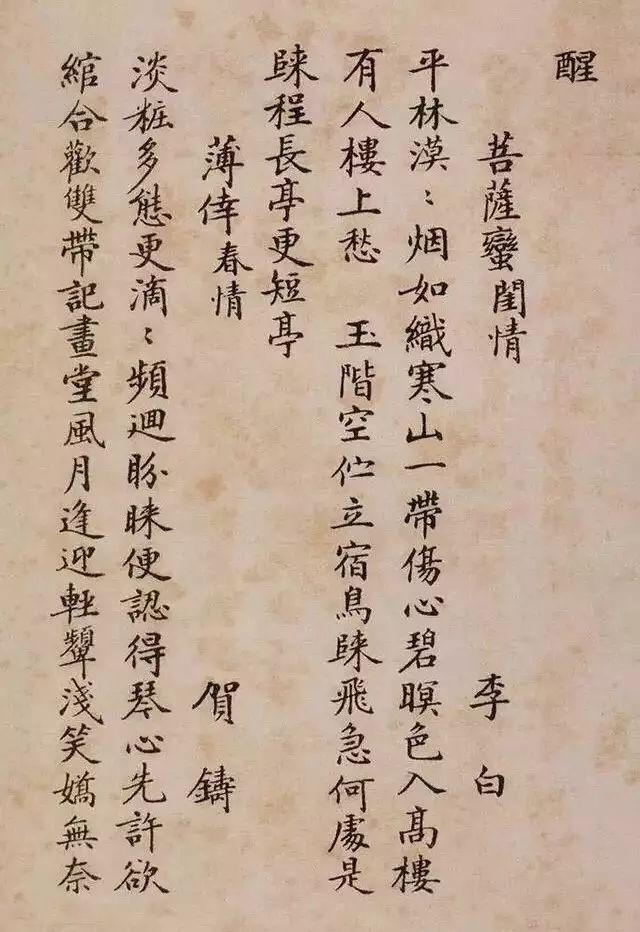 醒
菩薩蠻 閨情 李白
平林漠〻烟如織寒山一帶傷心碧暝色入高樓
有人樓上愁 玉階空伫立宿鳥歸飛急何處是
歸程長亭更短亭
薄倖 春情 賀鑄
淡粧多態更滴〻頻迴盼睞便認得琴心先許欲
綰合歡雙帶記畫堂風月逢迎輕顰淺笑嬌無奈